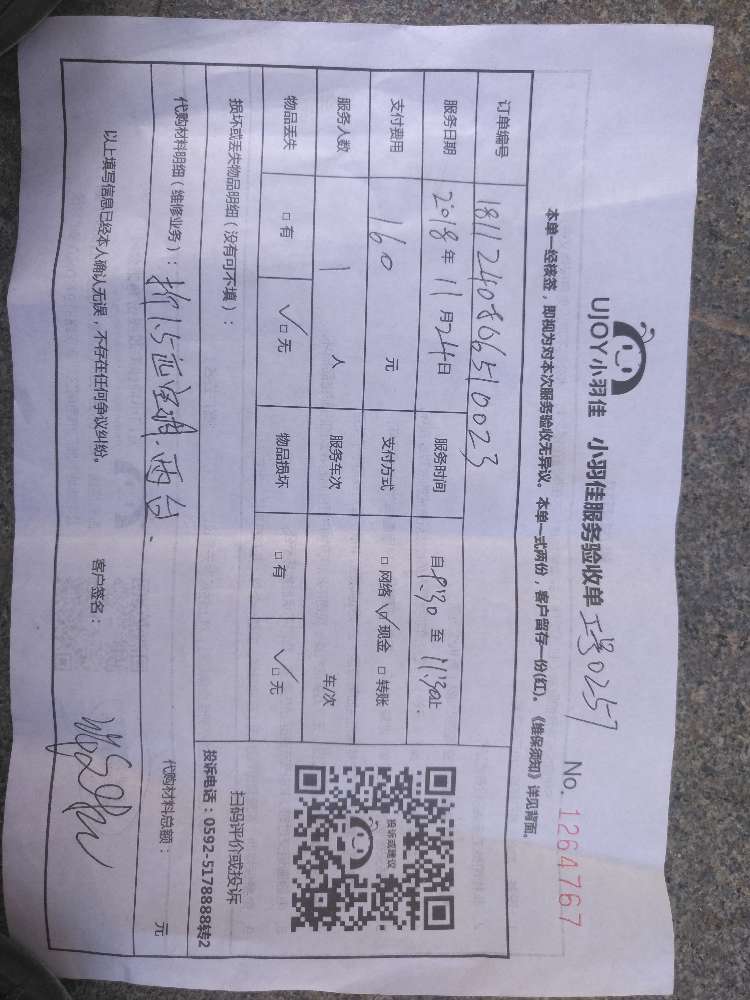 UJOY小羽佳 小羽佳服务验收单 工号0257 No. 1264767
本单一经核签，即视为对本次服务验收无异议。本单一式两份，客户留存一份(红)。《维保须知》详见背面。
订单编号 181124086510023
服务日期 2018年11月24日 服务时间 自9:30至11:30止
支付费用 160 元 支付方式 □网络 ☑现金 □转账
服务人数 1 人 服务车次 车/次
物品丢失 □有 ☑无 物品损坏 □有 ☑无
损坏或丢失物品明细（没有可不填）：
代购材料明细（维修业务）： 两台. 代购材料总额： 元
以上填写信息已经本人确认无误，不存在任何争议纠纷。 客户签名：
投诉或建议
扫码评价或投诉
投诉电话：0592-5178888转2